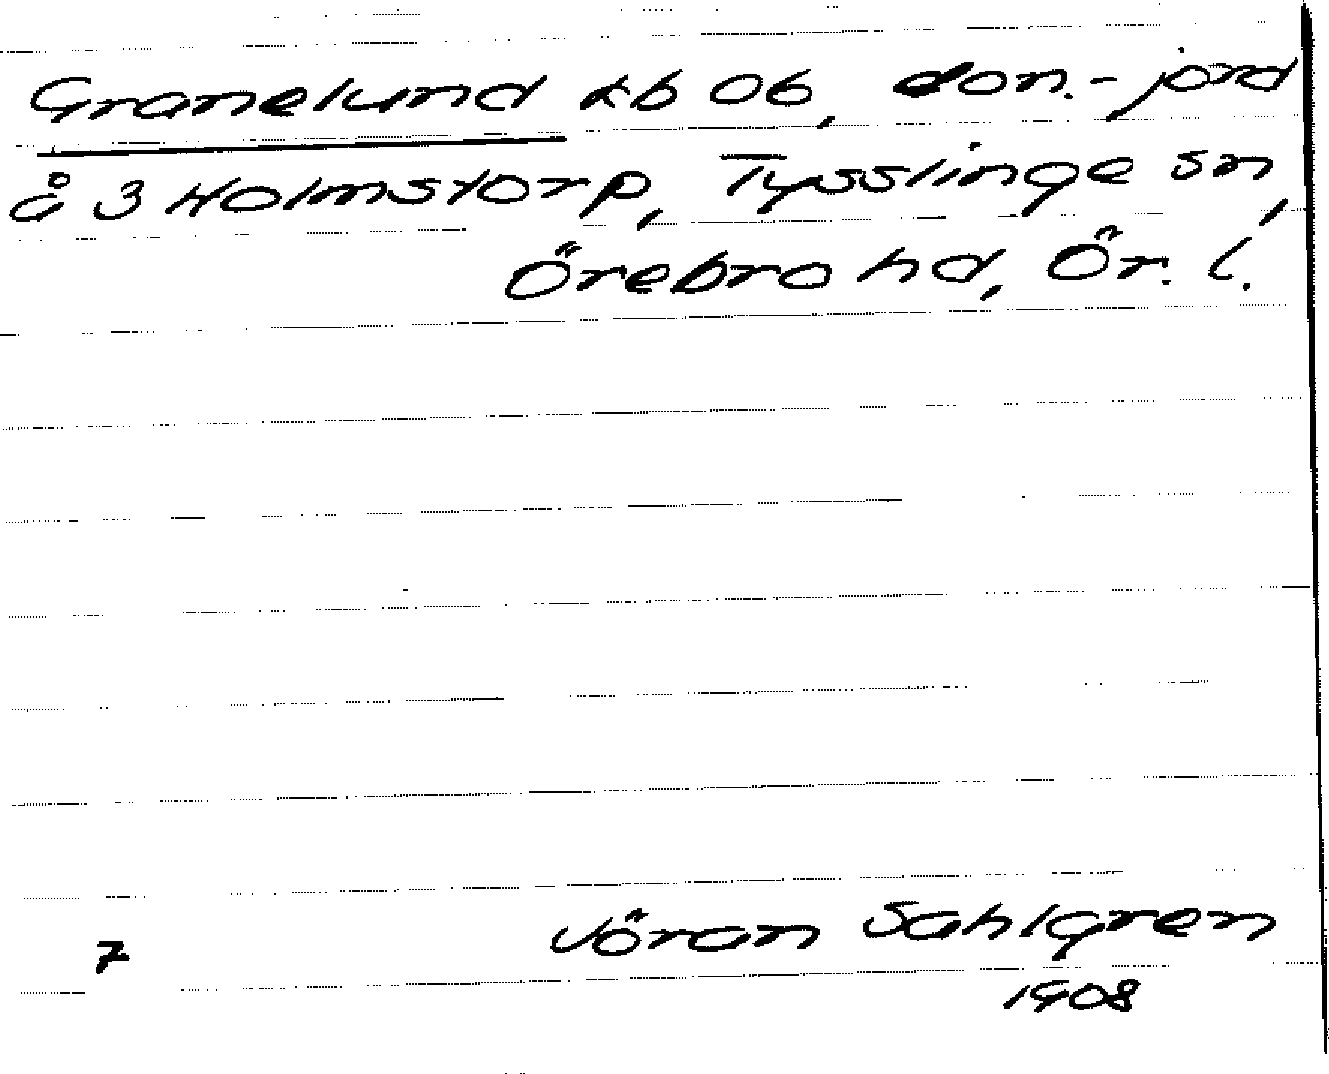 Granelund kb 06, don.-jord
å 3 Holmstorp, Tysslinge sn,
Örebro hd, Ör. l.
Jöran Sahlgren
7
1908